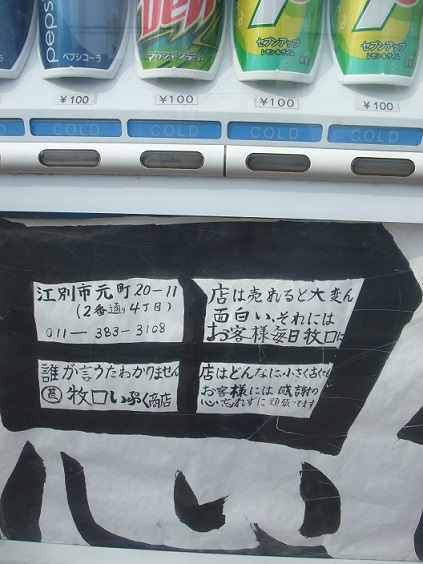 pepsi
ペプシコーラ
Dew
マウンテンデュー
セブンアップ
レモン&ライム
セブンアップ
レモン&ライム
¥100
¥100
¥100
¥100
COLD
COLD
COLD
COLD
江別市元町20-11
(2番通り4丁目)
011-383-3108
店は売れると大変ん
面白い、それには
お客様毎日牧口に
誰が言うたわかりません
牧口いふく商店
店はどんなに小さく古くても
お客様には感謝の
心忘れずに頑張ってます